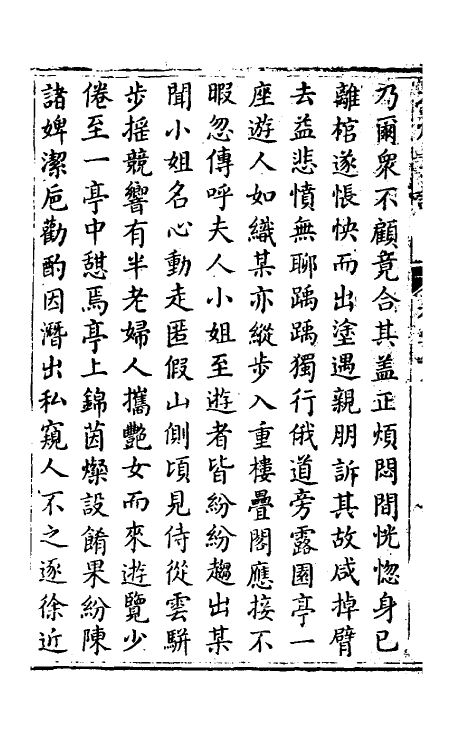 乃爾衆不顧竟合其蓋正煩悶間恍惚身已
離棺遂悵怏而出塗遇親朋訴其故咸掉臂
去益悲憤無聊踽踽獨行俄道旁露園亭一
座遊人如織某亦縱步入重樓疊閣應接不
暇忽傳呼夫人小姐至遊者皆紛紛趨出某
聞小姐名心動走匿假山側頃見侍從雲駢
步摇競響有半老婦人攜艷女而來遊覽少
倦至一亭中憇焉亭上錦茵燦設餚果紛陳
諸婢潔巵勸酌因潛出私窺人不之逐徐近